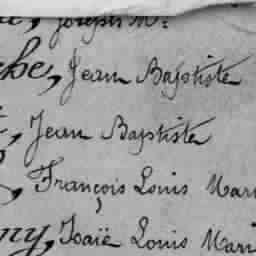 Joseph M.
che, Jean Baptiste
, Jean Baptiste
, François Louis Mari
ny, Isaïe Louis Mari